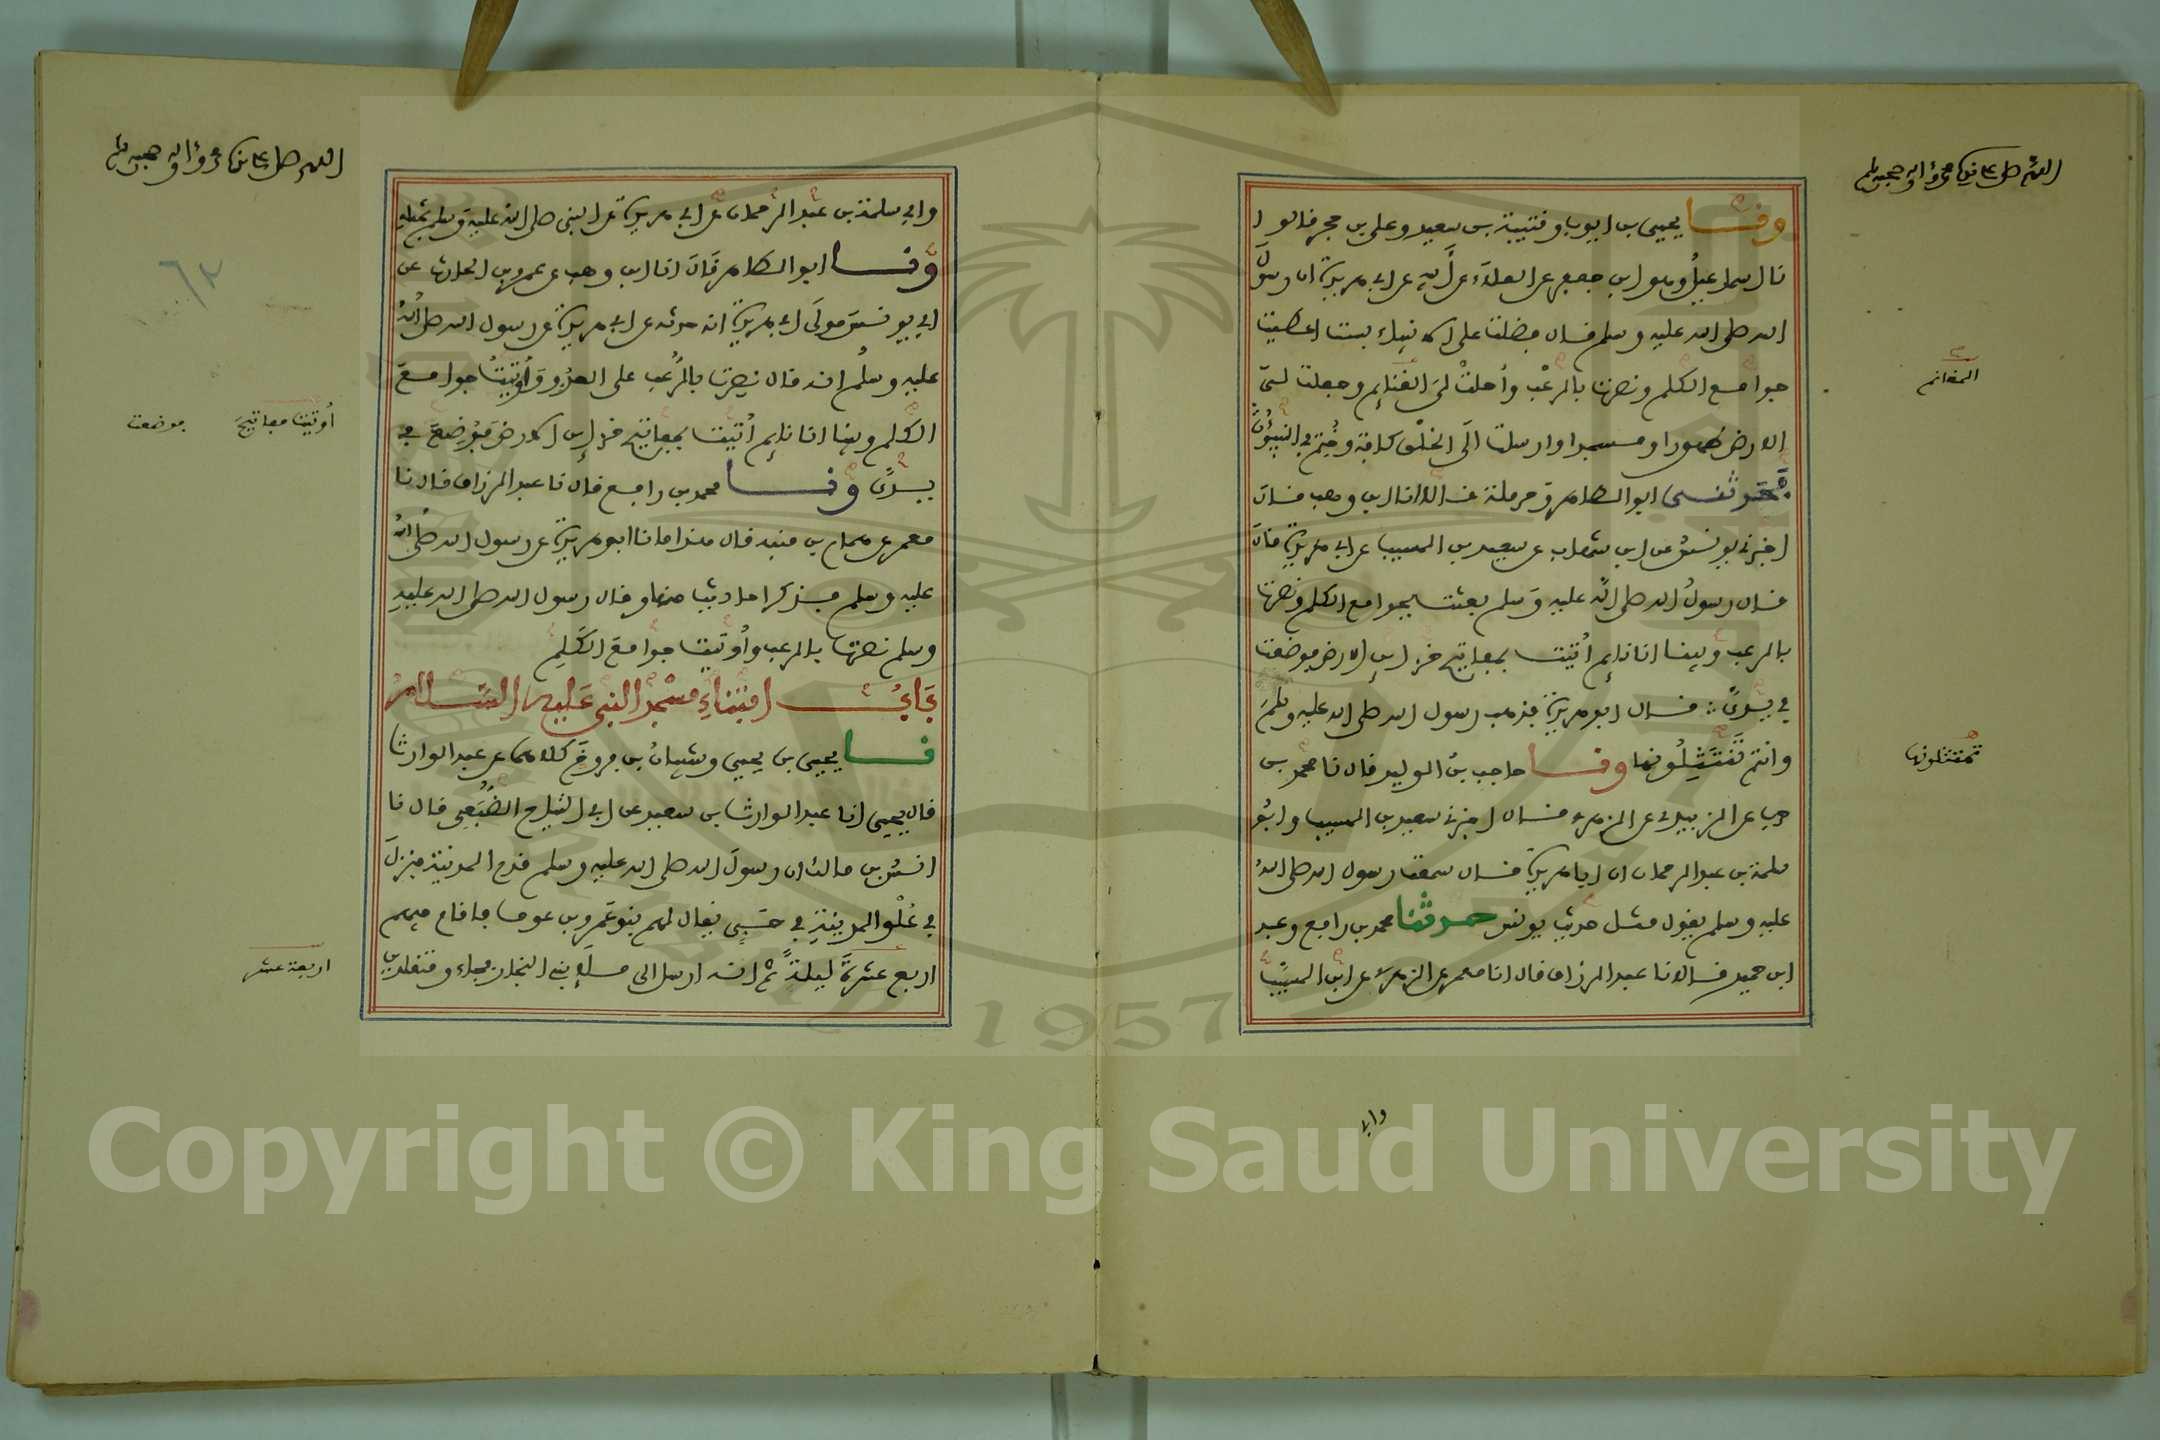 اللهم صل على نبيك محمد واله وصحبه وسلم
ونا يحيى بن ايوب وقتيبة بن سعيد وعلي بن حجر قالوا
نا اسماعيل وهو ابن جعفر عن العلاء عن ابيه عن ابي هريرة ان رسول
الله صلى الله عليه وسلم قال فضلت على الانبياء بست اعطيت
جوامع الكلم ونصرت بالرعب وأحلت لي الغنايم وجعلت لي
المغانم
الارض طهورا ومسجدا وارسلت الى الخلق كافة وختم بي النبيون
حدثني ابو الطاهر وحرملة قالا انا ابن وهب قال
اخبرني يونس عن ابن شهاب عن سعيد بن المسيب عن ابي هريرة قال
قال رسول الله صلى الله عليه وسلم بعثت بجوامع الكلم ونصرت
بالرعب وبينا انا نايم أتيت بمفاتيح خزاين الارض فوضعت
في يدي قال ابو هريرة فذهب رسول الله صلى الله عليه وسلم
وانتم تنتثلونها ونا حاجب بن الوليد قال نا محمد بن
حرب عن الزبيدي عن الزهري قال اخبرني سعيد بن المسيب وابو
سلمة بن عبد الرحمان ان ابا هريرة قال سمعت رسول الله صلى الله
عليه وسلم يقول مثل حديث يونس حدثنا محمد بن رافع وعبد
ابن حميد قالا نا عبد الرزاق قال انا معمر عن الزهري عن ابن المسيب
وابي
اللهم صل على نبيك محمد واله وصحبه وسلم
وابي سلمة بن عبد الرحمان عن ابي هريرة عن النبي صلى الله عليه وسلم بمثله
ونا ابو الطاهر قال انا ابن وهب عن عمرو بن الحارث عن
٦٢
ابي يونس مولى ابي هريرة انه حدثه عن ابي هريرة عن رسول الله صلى الله
عليه وسلم انه قال نصرت بالرعب على العدو وأوتيت جوامع
الكلم وبينا انا نايم أتيت بمفاتيح خزاين الارض فوضعت في
أوتيت مفاتيح فوضعت
يدي ونا محمد بن رافع قال نا عبد الرزاق قال نا
معمر عن همام بن منبه قال هذا ما نا ابو هريرة عن رسول الله صلى الله
عليه وسلم فذكر احاديث منها وقال رسول الله صلى الله عليه
وسلم نصرت بالرعب وأوتيت جوامع الكلم
باب ابتناء مسجد النبي عليه السلام
نا يحيى بن يحيى وشيبان بن فروخ كلاهما عن عبد الوارث
قال يحيى انا عبد الوارث بن سعيد عن ابي التياح الضبعي قال نا
انس بن مالك ان رسول الله صلى الله عليه وسلم قدم المدينة فنزل
في علو المدينة في حي يقال لهم بنو عمرو بن عوف فاقام فيهم
اربع عشرة ليلة ثم انه ارسل الى ملإ بني النجار فجاءو متقلدين
اربعة عشر
1957
Copyright © King Saud University